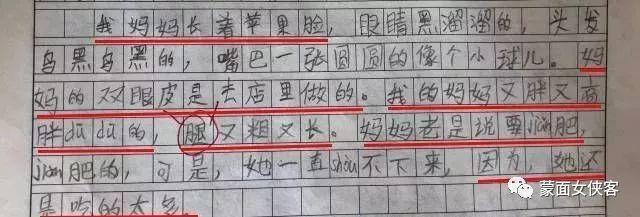 我妈妈长着苹果脸,眼睛黑溜溜的,头发
乌黑乌黑的,嘴巴一张圆圆的像个小球儿。妈
妈的双眼皮是去店里做的。我的妈妈又胖又高
胖dūdū的,腿又粗又长。妈妈老是说要jiǎn肥,
jiǎn肥的,可是,她一直shòu不下来,因为,她还
是吃的太多
蒙面女侠客